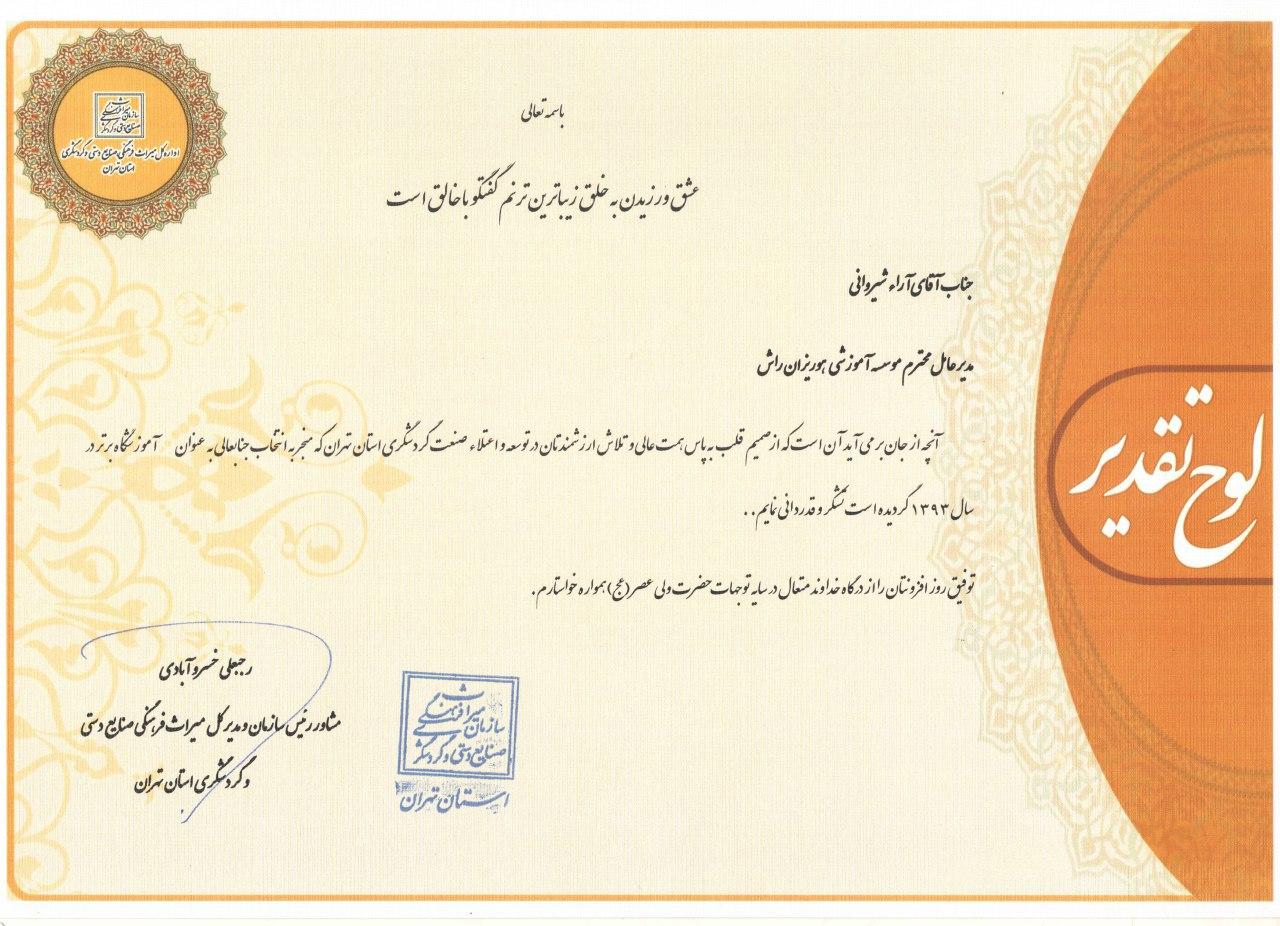 باسمه تعالی
عشق ورزیدن به خلق زیباترین ترنم گفتگو با خالق است
جناب آقای آراء شیروانی
مدیرعامل محترم موسسه آموزشی هوریزان راش
آنچه از جان برمی آید آن است که از صمیم قلب به پاس همت عالی و تلاش ارزشمندتان در توسعه و اعتلاء صنعت گردشگری استان تهران که منجر به انتخاب جنابعالی به عنوان آموزشگاه برتر در
سال ۱۳۹۳ گردیده است تشکر و قدردانی نمایم..
توفیق روز افزونتان را از درگاه خداوند متعال در سایه توجهات حضرت ولی عصر (عج) همواره خواستارم.
رجبعلی خسروآبادی
مشاور رئیس سازمان و مدیرکل میراث فرهنگی صنایع دستی
و گردشگری استان تهران
لوح تقدیر
سازمان میراث فرهنگی
صنایع دستی و گردشگری
اداره کل میراث فرهنگی، صنایع دستی و گردشگری
استان تهران
سازمان میراث فرهنگی
صنایع دستی و گردشگری
استان تهران